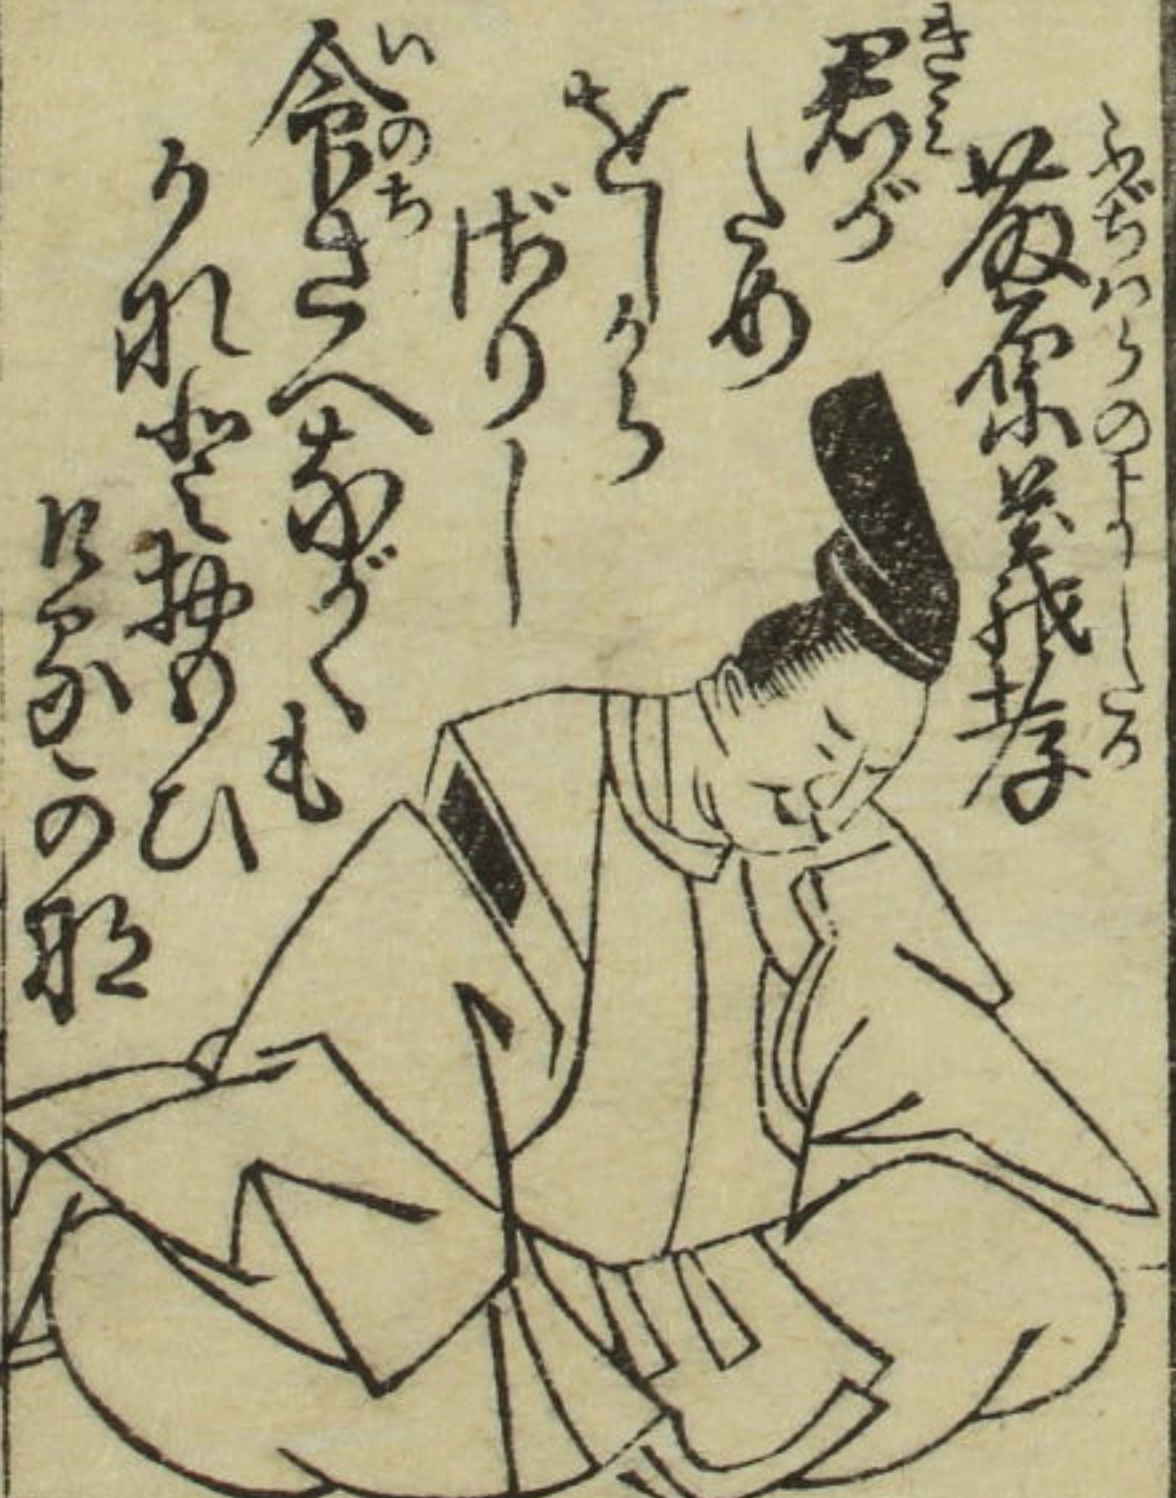 ふぢはらのよしたか
藤原義孝
きみ
君が
ため
をしから
ざりし
いのち
命さへながくも
がなとおもひ
けるかな